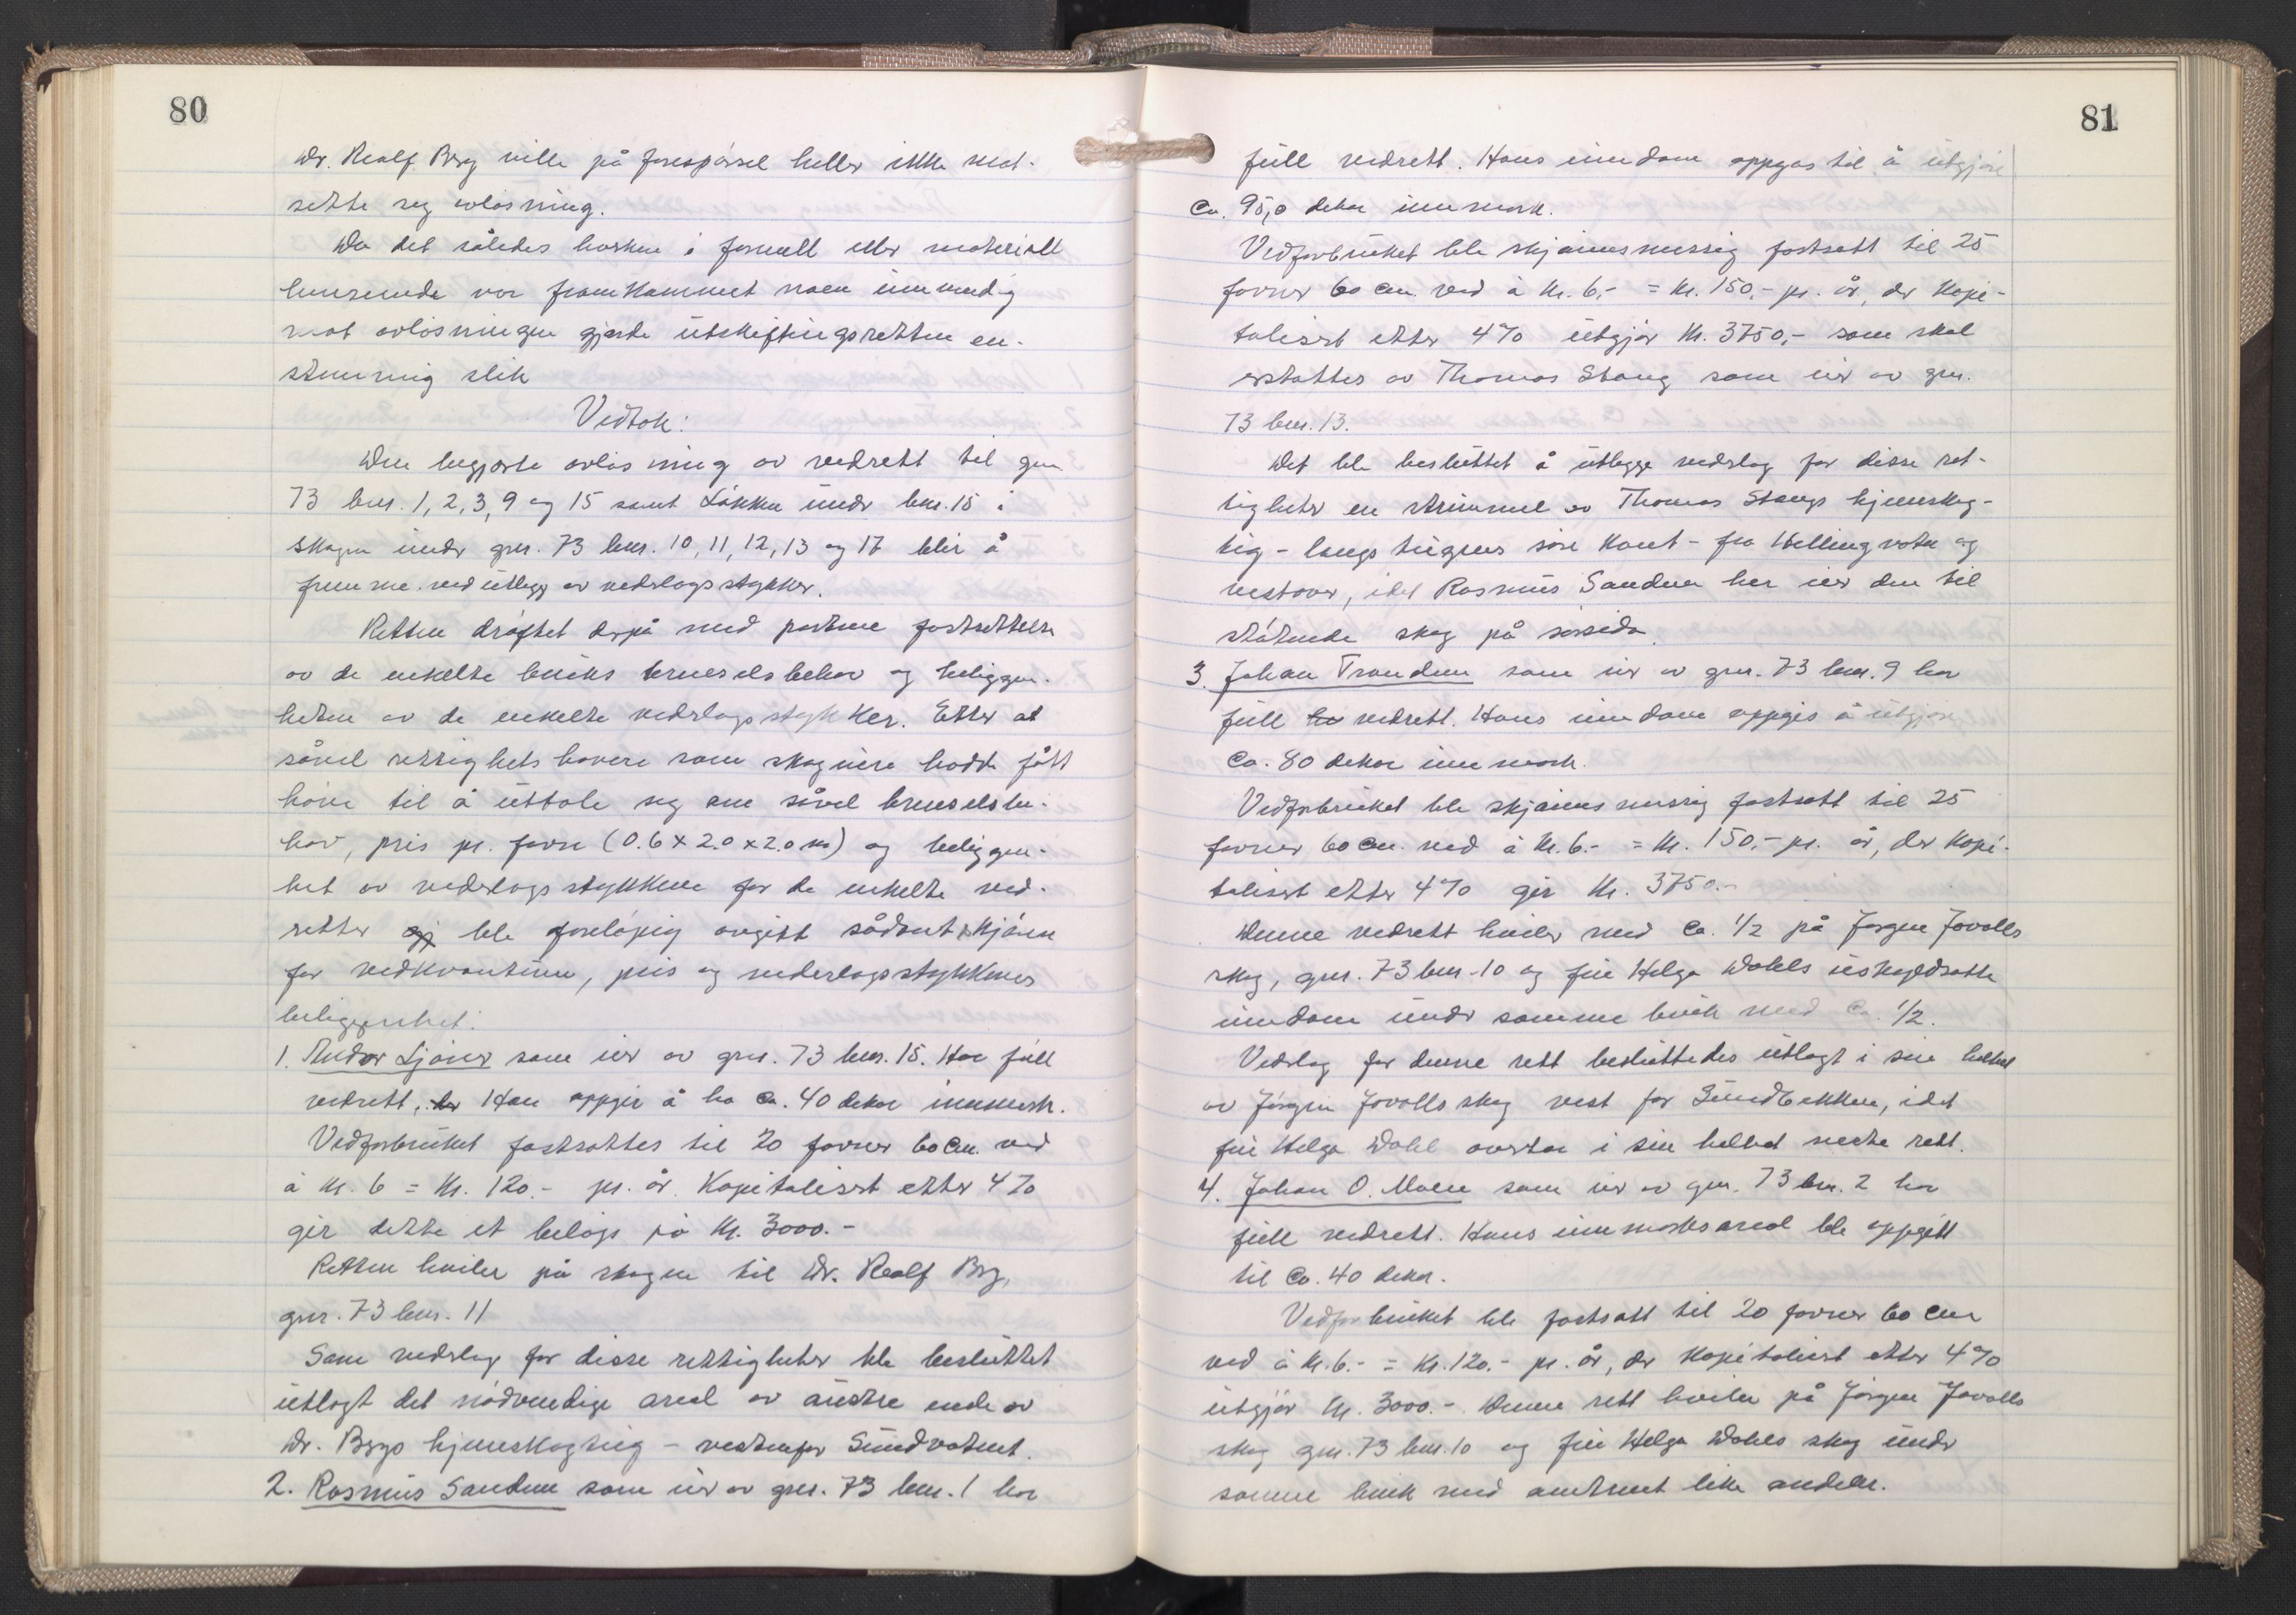 80
Dr. Realf Berg ville på forespørsel heller ikke mot-
sette seg avløsning.
Da det således hverken i formell eller materiell
henseende var framkommet noen innvending
mot avløsningen gjorde utskiftingsretten en-
stemmig slik
Vedtak:
Den begjærte avløsning av vedrett til gnr.
73 bnr. 1, 2, 3, 9 og 15 samt Løkken under bnr. 15 i
skogen under gnr. 73 bnr. 10, 11, 12, 13 og 17 blir å
fremme ved utlegg av vederlagsstykker.
Retten drøftet derpå med partene fastsettelse
av de enkelte bruks brenselsbehov og beliggen-
heten av de enkelte vederlagsstykker. Etter at
såvel rettighetshavere som skogeiere hadde fått
høve til å uttale seg om såvel brenselsbe-
hov, pris pr. favn (0.6 x 2.0 x 2.0 m) og beliggen-
het av vederlagsstykkene for de enkelte ved-
retter ble foreløpig avgitt sådant skjønn
for vedkvantum, pris og vederlagsstykkenes
beliggenhet:
1. Andor Ljøner som eier av gnr. 73 bnr. 15. Har full
vedrett. Han oppgir å ha ca. 40 dekar innmark.
Vedforbruket fastsattes til 20 favner 60 cm. ved
à kr. 6 = kr. 120.- pr. år. Kapitalisert etter 4%
gir dette et beløp på kr. 3000.-
Retten hviler på skogen til Dr. Realf Berg,
gnr. 73 bnr. 11
Som vederlag for disse rettigheter ble besluttet
utlagt det nødvendige areal av austre ende av
Dr. Bergs hjemskogteig - vestenfor Sundvatnet.
2. Rasmus Sandnes som eier av gnr. 73 bnr. 1 har
81
full vedrett. Hans eiendom oppgas til å utgjøre
ca. 95,0 dekar innmark.
Vedforbruket ble skjønnsmessig fastsatt til 25
favner 60 cm. ved à kr. 6,- = kr. 150,- pr. år, der kapi-
talisert etter 4% utgjør kr. 3750,- som skal
erstattes av Thomas Stang som eier av gnr.
73 bnr. 13.
Det ble besluttet å utlegge vederlag for disse ret-
tigheter en strimmel av Thomas Stangs hjemskog-
teig - langs teigens søre kant - fra Hellingvatn og
vestover, idet Rasmus Sandnes her eier den til
støtende skog på sørsida.
3. Johan Trondsen som eier av gnr. 73 bnr. 9 har
full vedrett. Hans eiendom oppgis å utgjøre
ca. 80 dekar innmark.
Vedforbruket ble skjønnsmessig fastsatt til 25
favner 60 cm. ved à kr. 6.- = kr. 150,- pr. år, der kapi-
talisert etter 4% gir kr. 3750.-
Denne vedrett hviler med ca. 1/2 på Jørgen Jovolls
skog, gnr. 73 bnr. 10 og fru Helga Dahls uskyldsatte
eiendom under samme bruk med ca. 1/2.
Vederlag for denne rett besluttedes utlagt i sin helhet
av Jørgen Jovolls skog vest for Sundbekken, idet
fru Helga Dahl overtar i sin helhet neste rett.
4. Johan O. Moen som eier av gnr. 73 bnr. 2 har
full vedrett. Hans innmarksareal ble oppgitt
til ca. 40 dekar.
Vedforbruket ble fastsatt til 20 favner 60 cm
ved à kr. 6.- = kr. 120.- pr. år, der kapitalisert etter 4%
utgjør kr. 3000.-. Denne rett hviler på Jørgen Jovolls
skog gnr. 73 bnr. 10 og fru Helga Dahls skog under
samme bruk med omtrent like andeler.